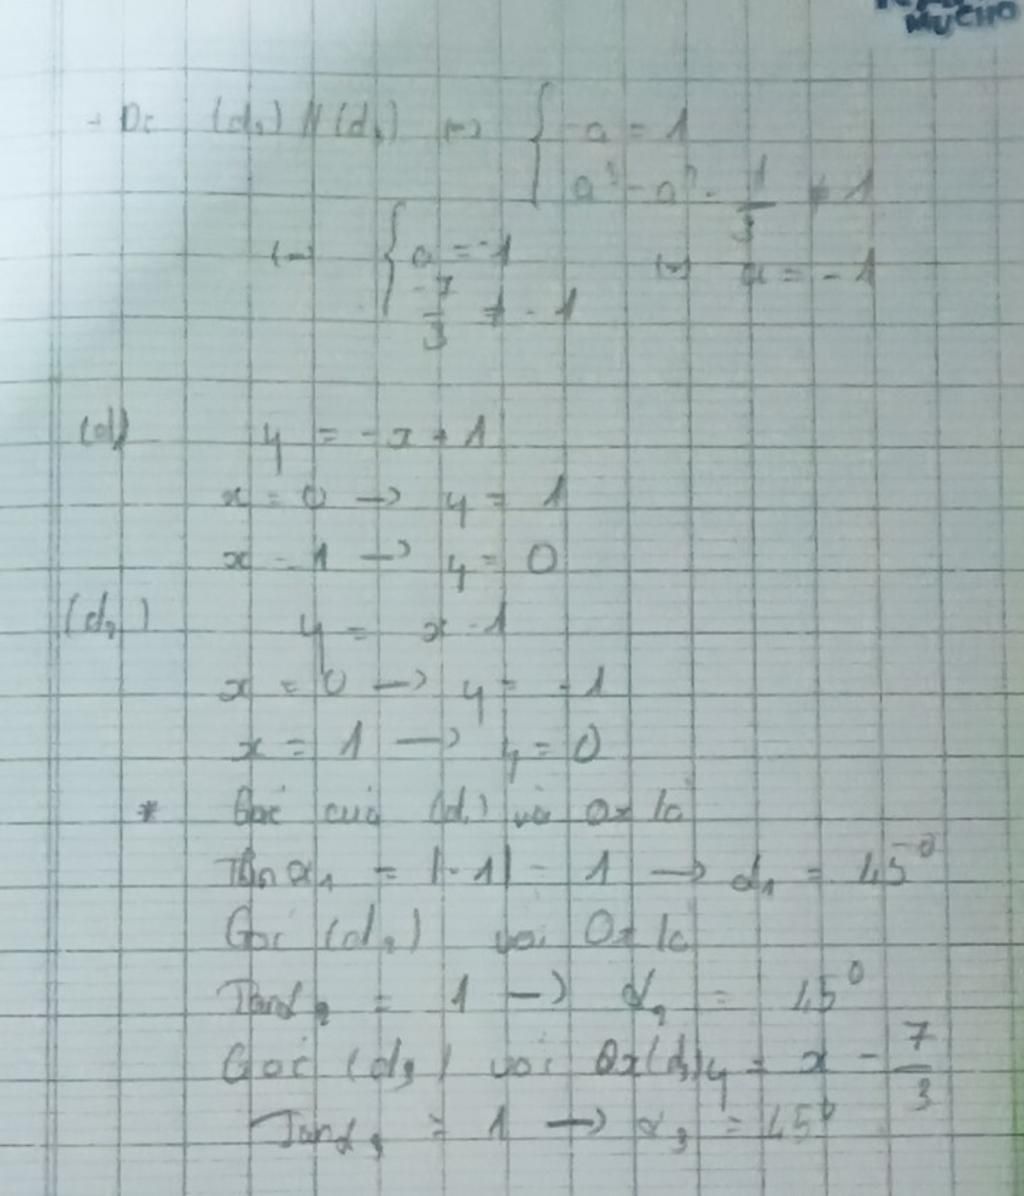 MUCHO
- Để (d₃) // (d₂) ⇔ { -a = 1
a³ - a² - 1/3 ≠ -1
⇔ { a = -1
-7/3 ≠ -1 ⇔ a = -1
(d₁) y = -x + 1
x = 0 → y = 1
x = 1 → y = 0
(d₂) y = x - 1
x = 0 → y = -1
x = 1 → y = 0
* Góc của (d₁) với Ox là
Tan α₁ = |-1| = 1 → α₁ = 45°
Góc (d₂) với Ox là
Tan α₂ = 1 → α₂ = 45°
Góc (d₃) với Ox (d₃) y = x - 7/3
Tan α₃ = 1 → α₃ = 45°